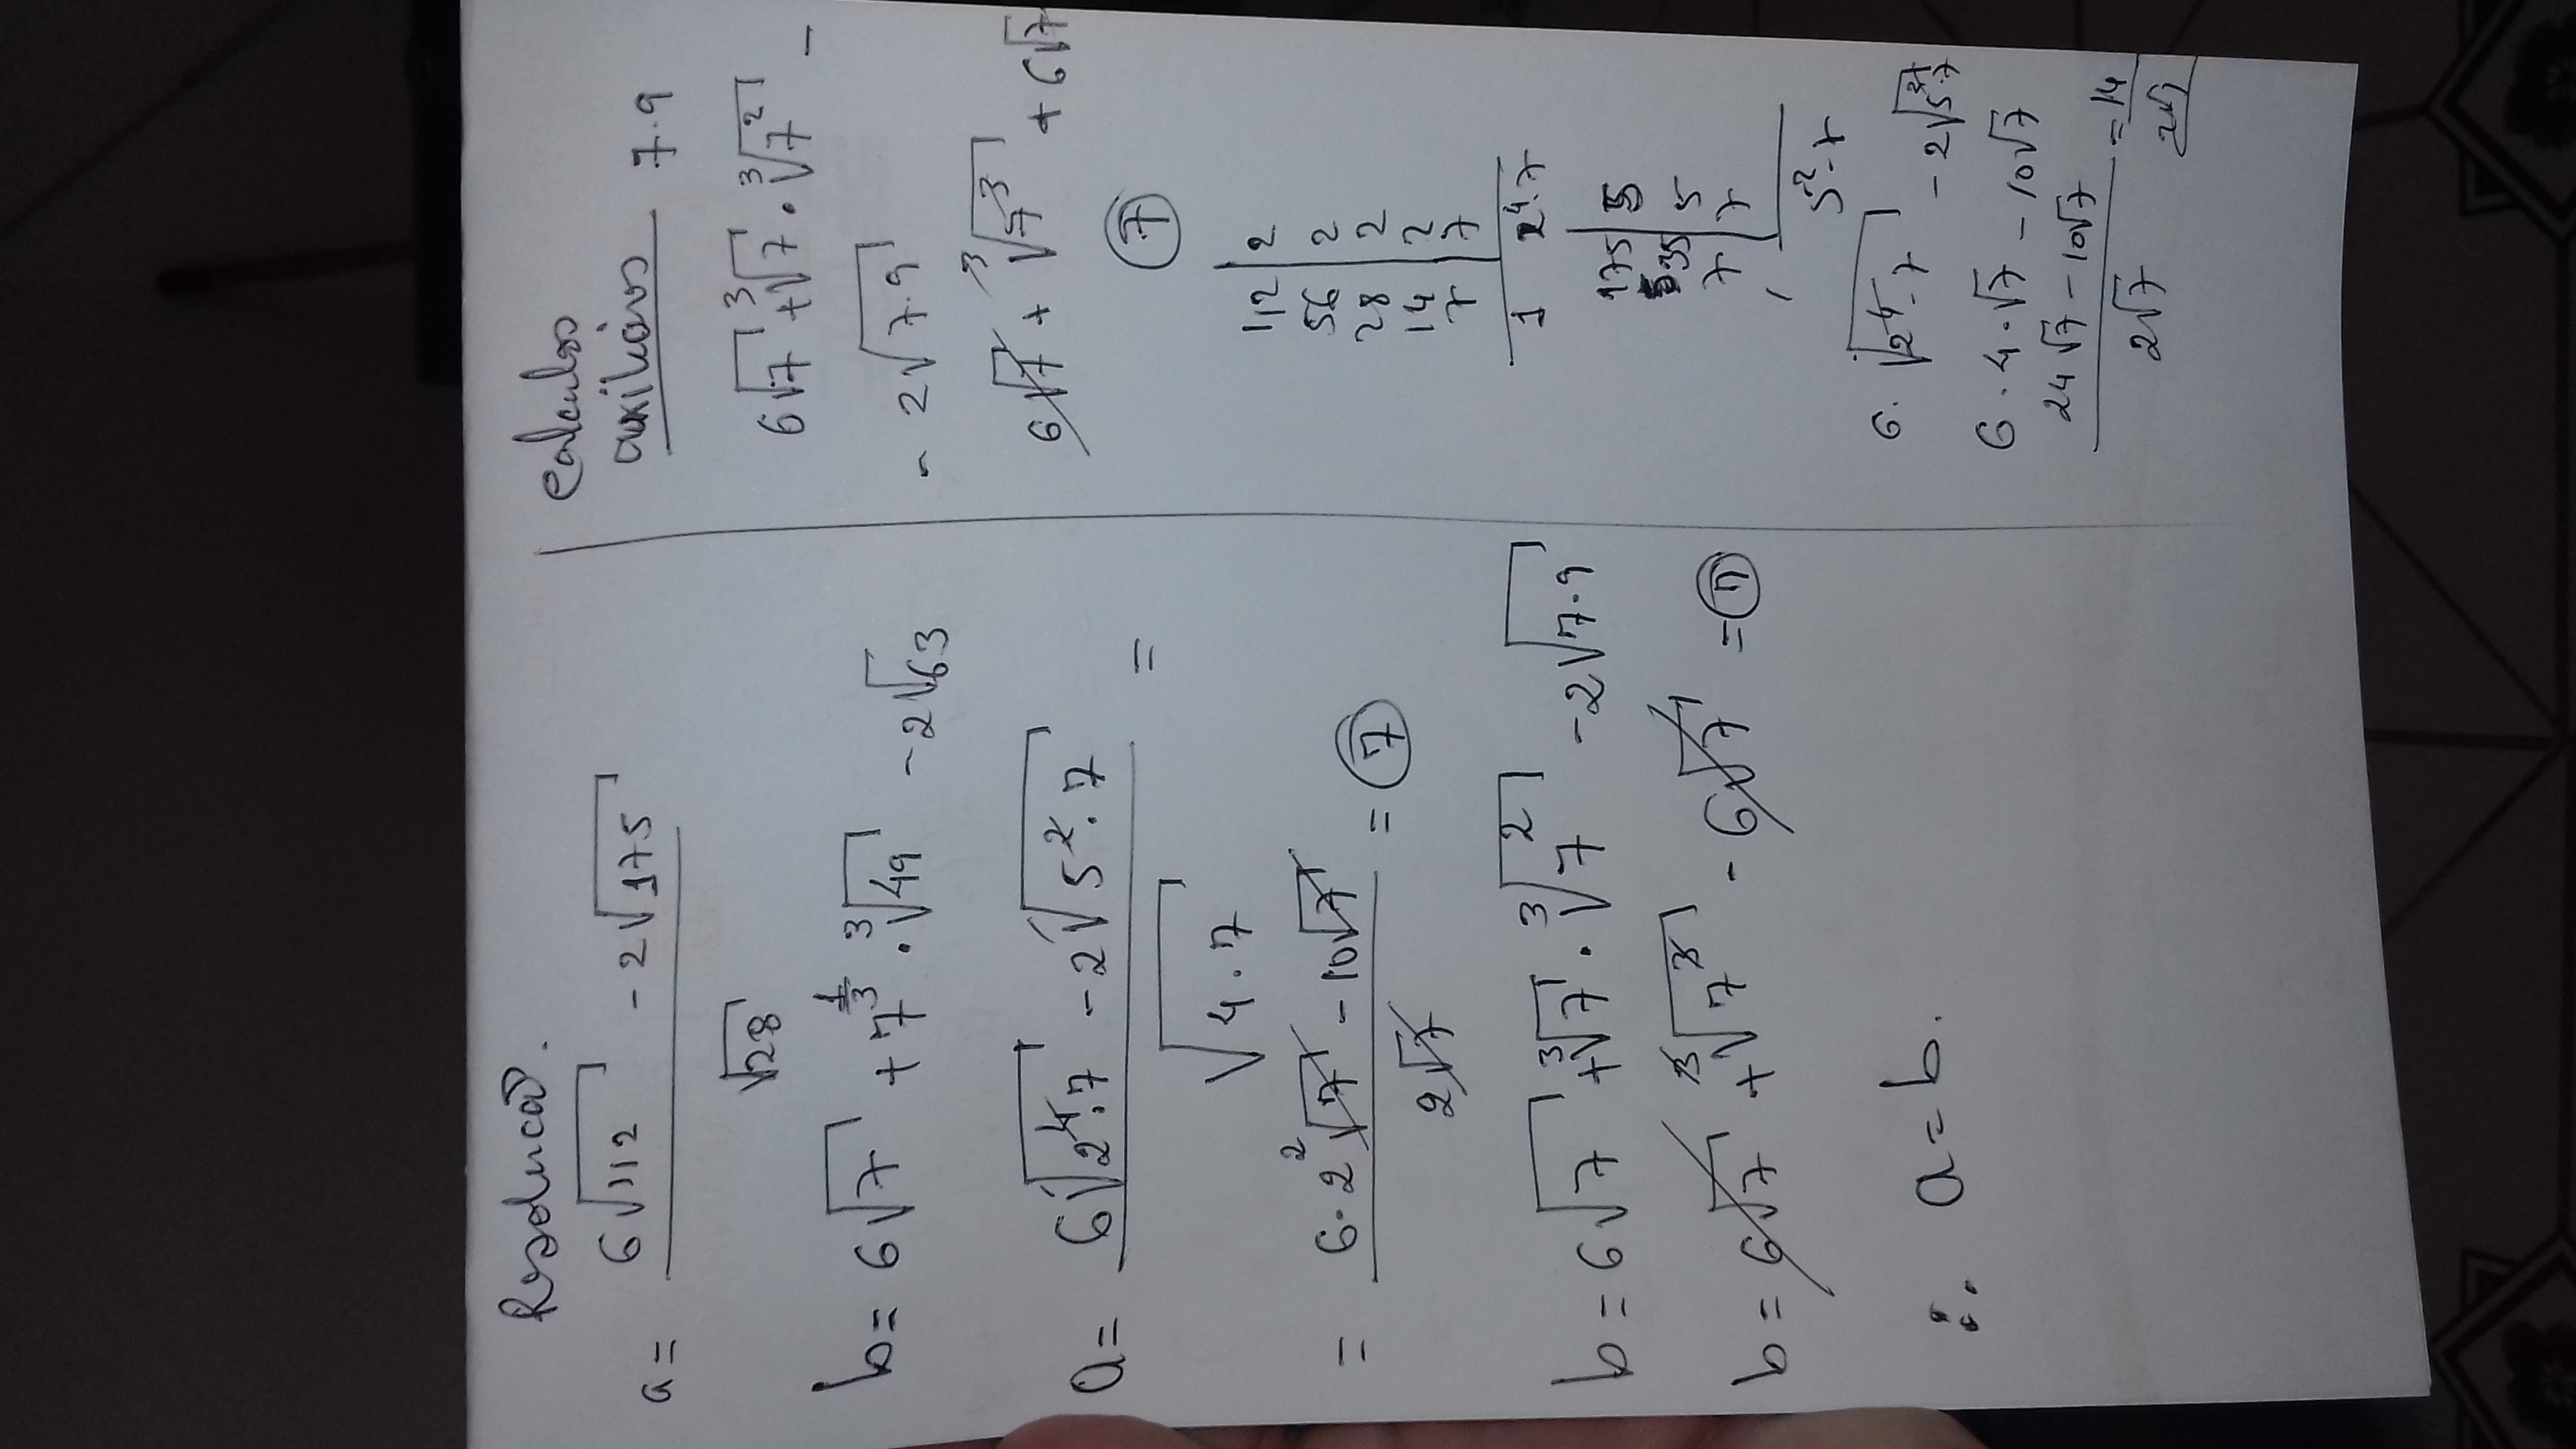 Resolucão.
a = 6√112 - 2√175
√28
b = 6√7 + 7^(1/3) · ∛49 - 2√63
a = 6√(2⁴·7) - 2√(5²·7) =
√(4·7)
= 6·2²√7 - 10√7 = 7
2√7
b = 6√7 + ∛7 · ∛7² - 2√(7·9)
b = 6√7 + ∛7³ - 6√7 = 7
∴ a = b.
Calculos
auxiliares 7·9
6√7 + ∛7 · ∛7² -
- 2√(7·9)
6√7 + ∛7³ + 6√7
7
112 | 2
56 | 2
28 | 2
14 | 2
7 | 7
1 2⁴·7
175 | 5
35 | 5
7 | 7
5²·7
6·√(2⁴·7) - 2√(5²·7)
6·4·√7 - 10√7
24√7 - 10√7 = 14
2√7